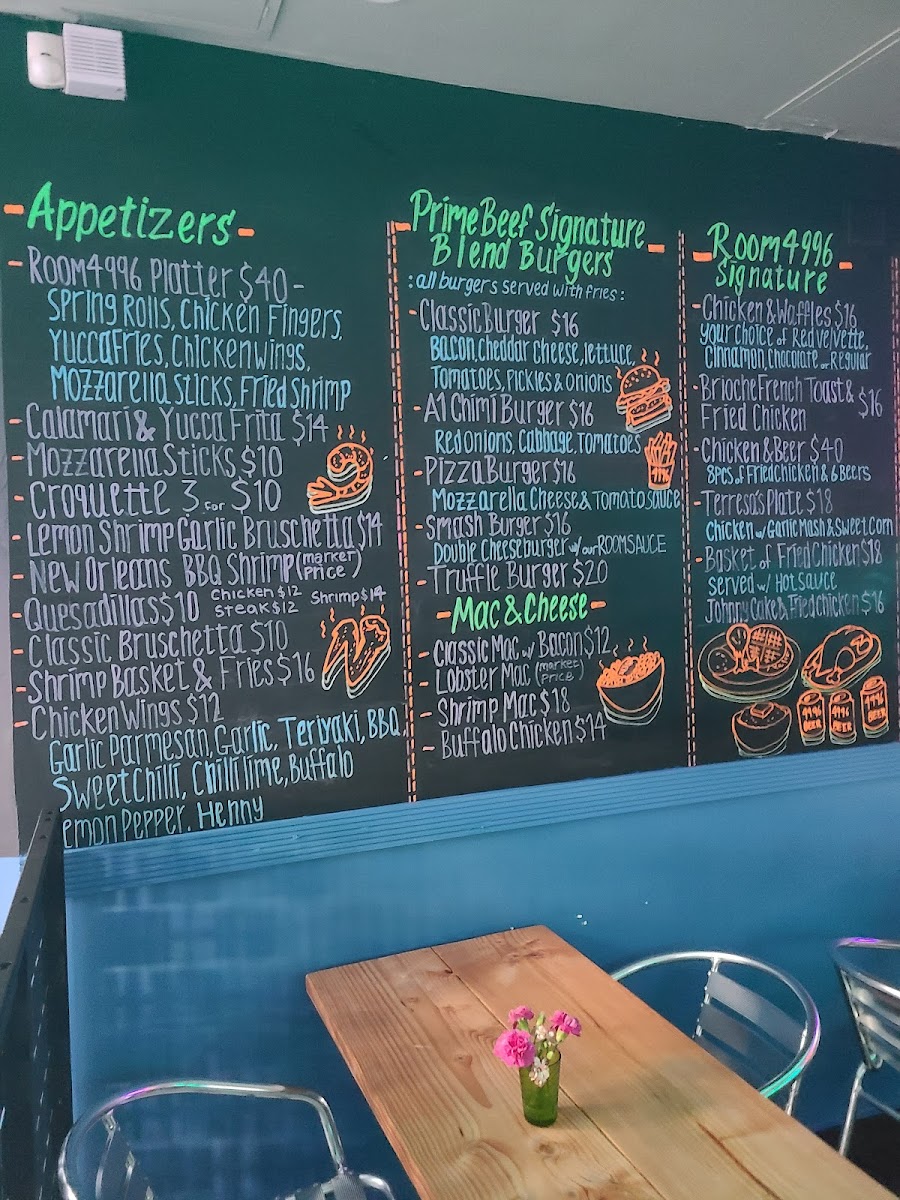 Appetizers
Room4996 Platter $40-
Spring Rolls, Chicken Fingers,
Yucca Fries, Chicken Wings,
Mozzarella Sticks, Fried Shrimp
Calamari & Yucca Frita $14
Mozzarella Sticks $10
Croquette 3 for $10
Lemon Shrimp Garlic Bruschetta $14
New Orleans BBQ Shrimp (market price)
Quesadillas $10 Chicken $12 Steak $12 Shrimp $14
Classic Bruschetta $10
Shrimp Basket & Fries $16
Chicken Wings $12
Garlic Parmesan, Garlic, Teriyaki, BBQ,
Sweet Chilli, Chilli lime, Buffalo
Lemon Pepper. Henny
Prime Beef Signature
Blend Burgers
: all burgers served with fries :
Classic Burger $16
Bacon, Cheddar cheese, lettuce,
Tomatoes, Pickles & Onions
A1 Chimi Burger $16
Red onions, Cabbage, Tomatoes
Pizza Burger $16
Mozzarella Cheese & Tomato sauce
Smash Burger $16
Double Cheeseburger w/ our ROOM SAUCE
Truffle Burger $20
Mac & Cheese
Classic Mac w/ Bacon $12
Lobster Mac (market price)
Shrimp Mac $18
Buffalo Chicken $14
Room4996
Signature
Chicken & Waffles $16
your choice of Red velvette,
Cinnamon, Chocolate or Regular
Brioche French Toast &
Fried Chicken $16
Chicken & Beer $40
8pcs of Fried chicken & 6 Beers
Terresa's Plate $18
Chicken w/ Garlic Mash & Sweet Corn
Basket of Fried Chicken $18
Served w/ Hot sauce
Johnny Cake & Fried chicken $16
BEER
BEER
BEER